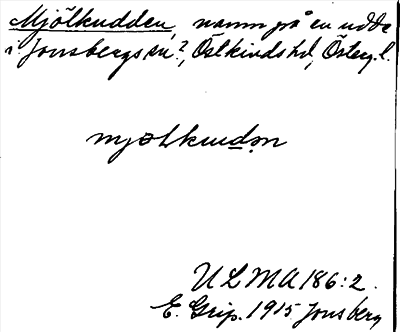 Mjölkudden, namn på en udde
i Jonsbergs sn?, Östkinds hd, Österg. l.
mjölkudən
ULMA 186:2.
E. Grip. 1915 Jonsberg